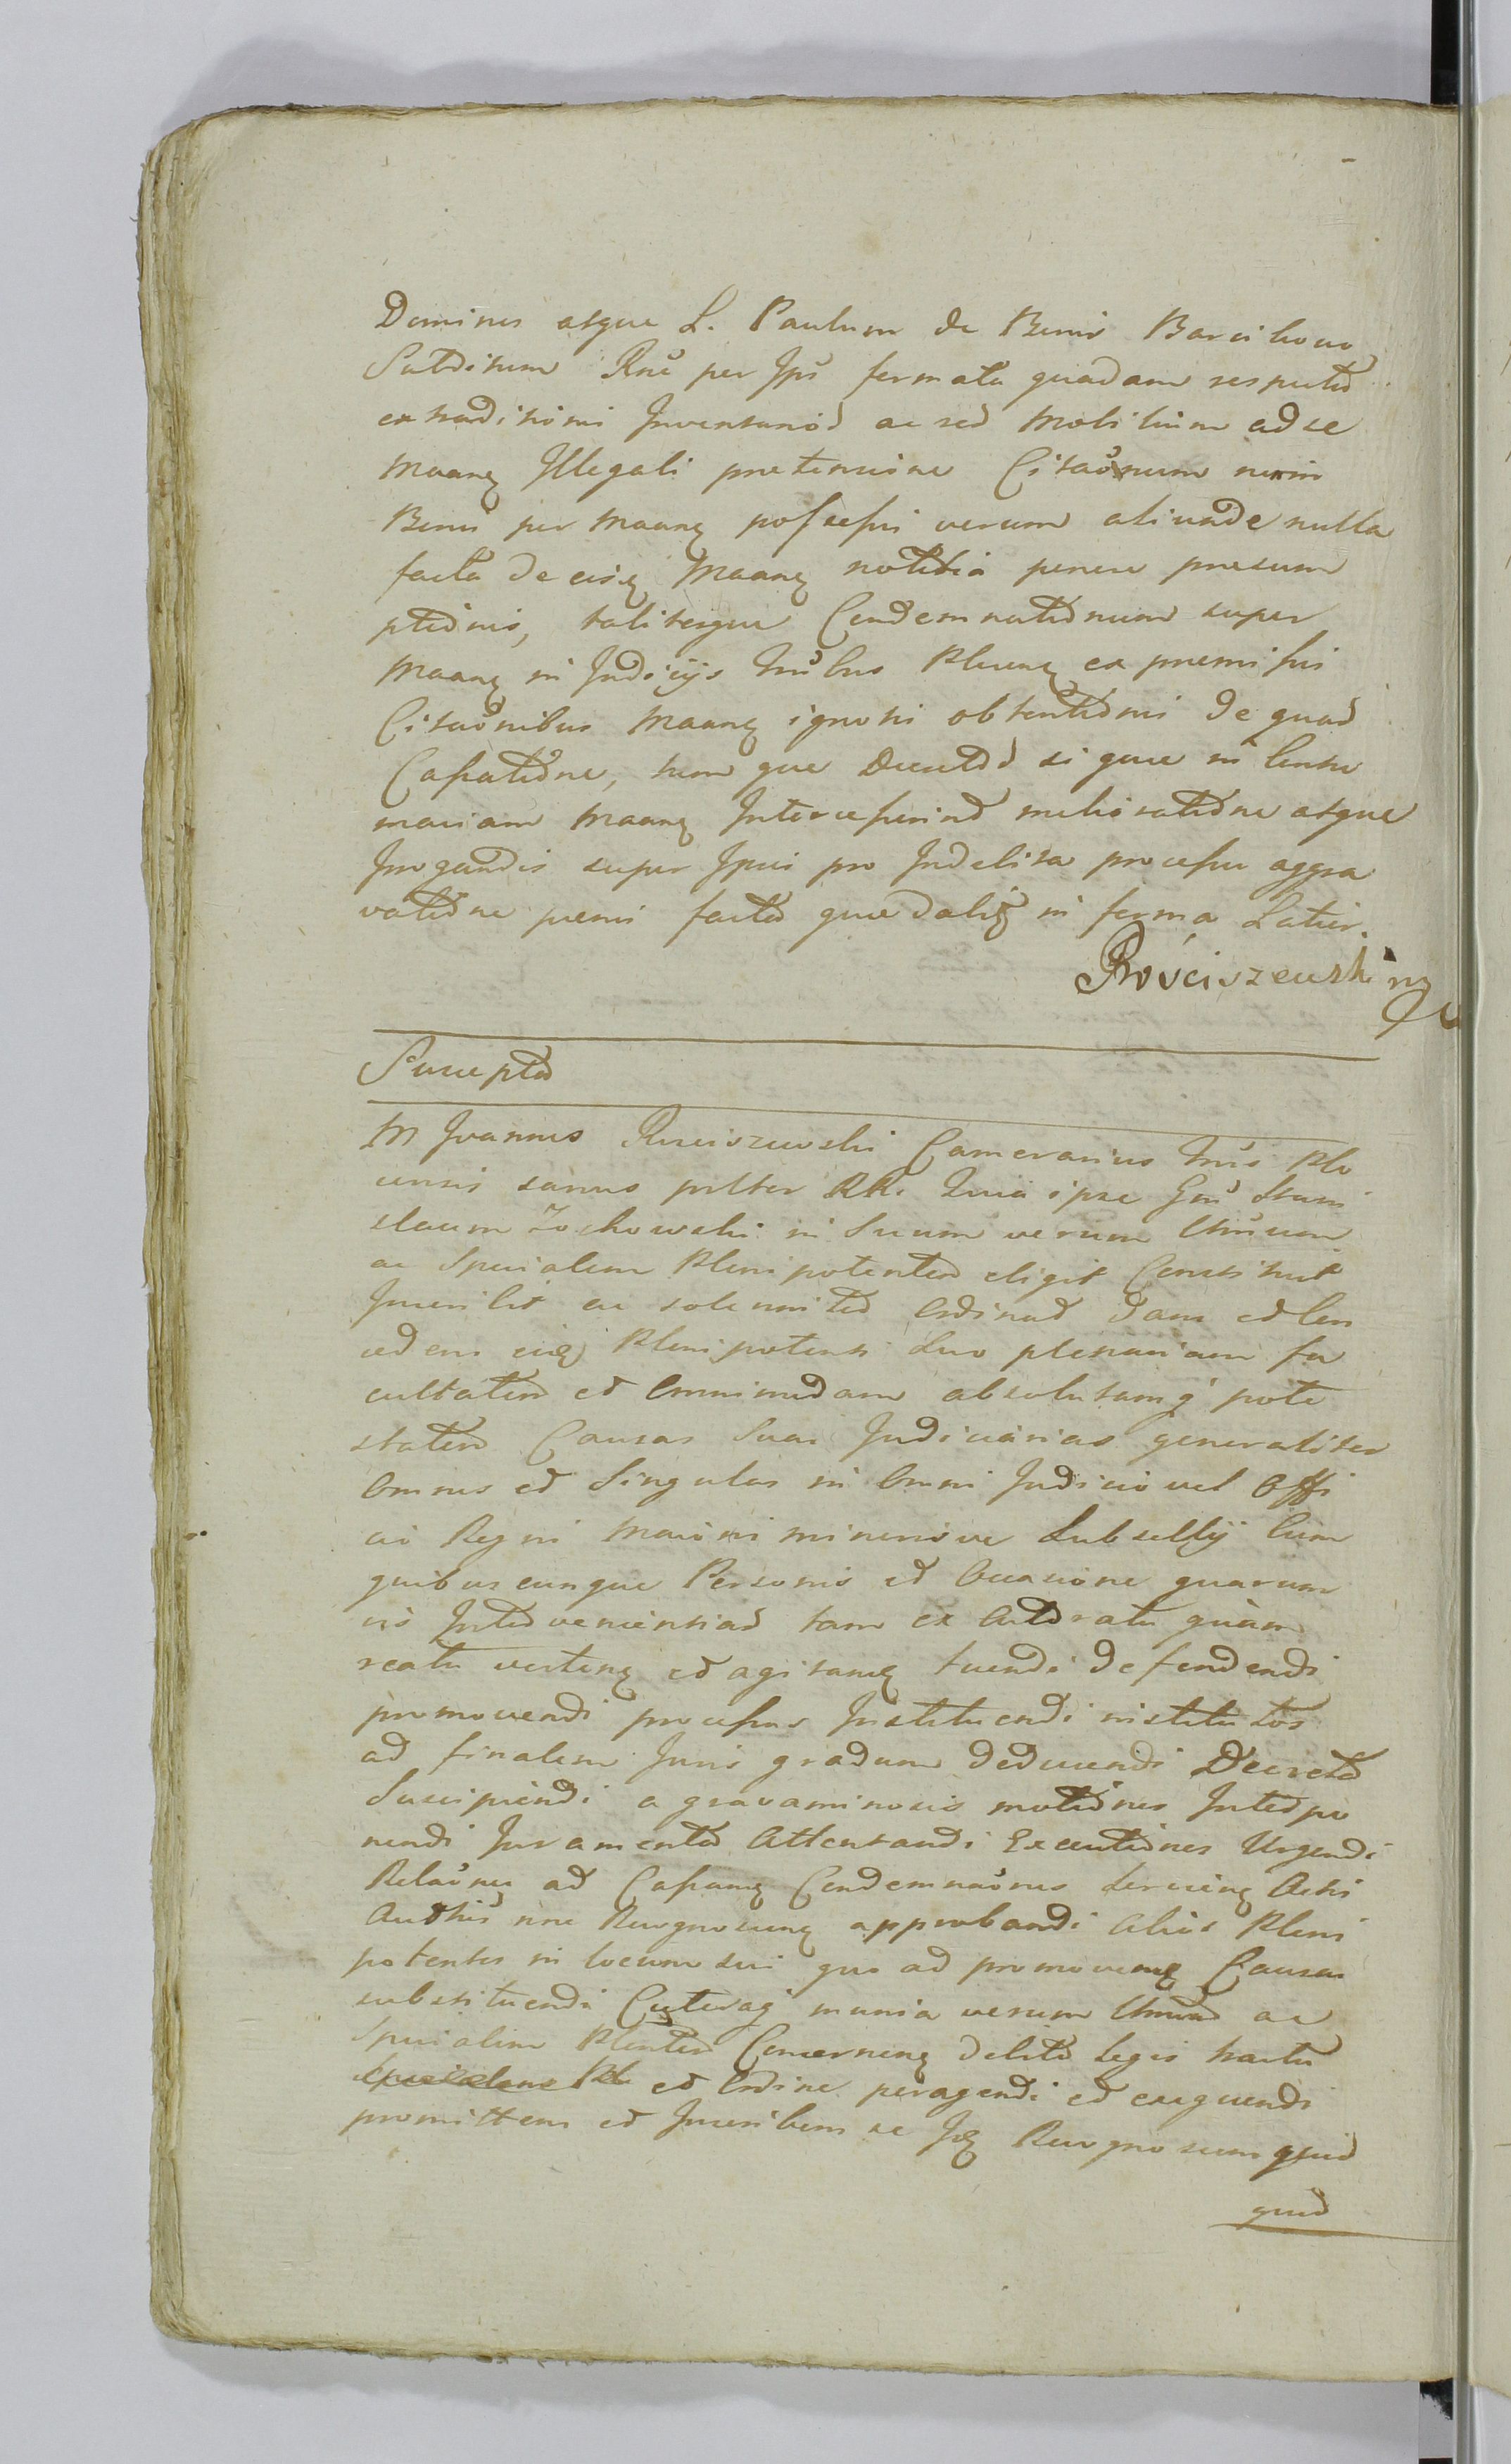 Dominos atque L. Paulum de Bonis Barcikowo
Subditum Rnē per Jps formata quadam respectu
extraditionis Inventariod ac red Mobilium ad se
Maanq Illegali pretensione Citaōnum non in
Bonis per Maanq possessis verum aliunde nulla
facta de eisq Maanq notitia ponere presum
ptionis, taliterque Condemnationum super
Maanq in Judicijs Trribus Plocenq ex premissis
Citaōnibus Maanq ignotis obtentionis de quad
Cassatione, tum que Decretod si que in Contu
maciam Maanq Intercesserind melioratione atque
Irrogandis super Ipsis pro Indebita processu aggra
vatione penis factod que dalszq in forma Latior.
Rościszewski mp
Suscepta
M Joannes Rusciszewski Camerarius Trris Plo
censis sanus pnlter RR. Quia ipse Gnē Stani
slaum Zochowski in Suum verum Unīcum
ac Specialem Plenipotentem eligit Constituit
Inscribit ac solenniter Ordinad Dans et Con
cedens eidq Plenipotenti Suo plenariam fa
cultatem et Omnimodam absolutamq pote
statem Causas Suas Judiciarias generaliter
Omnes et Singulas in Omni Judicio vel Offi
cio Regni Maioris minorisve Subsellij Cum
quibuscunque Personis et Occasione quarum
vis Intervenientiad tam ex Actoratu quàm
reatu vertenq et agitanq tuendi defendendi
promovendi processus Instituendi institutos
ad finalem Juris gradum deducendi Decreta
Suscipiendi a gravaminosis motiones Interpo
nendi Juramenta Attentandi Executiones Urgendi
Relaōnes ad Cassanq Condemnaōnes servienq Actis
Authis rne Recognoscenq approbandi Alios Pleni
potentes in locum sui quo ad promovenq Causas
substituendi Ceteraq munia verum Unicum ac
Specialem Plentem Concernenq debito legis tractu
et Ordine peragendi et exequendi
promittens et Inscribens se Jq Recognoscens quid
quid